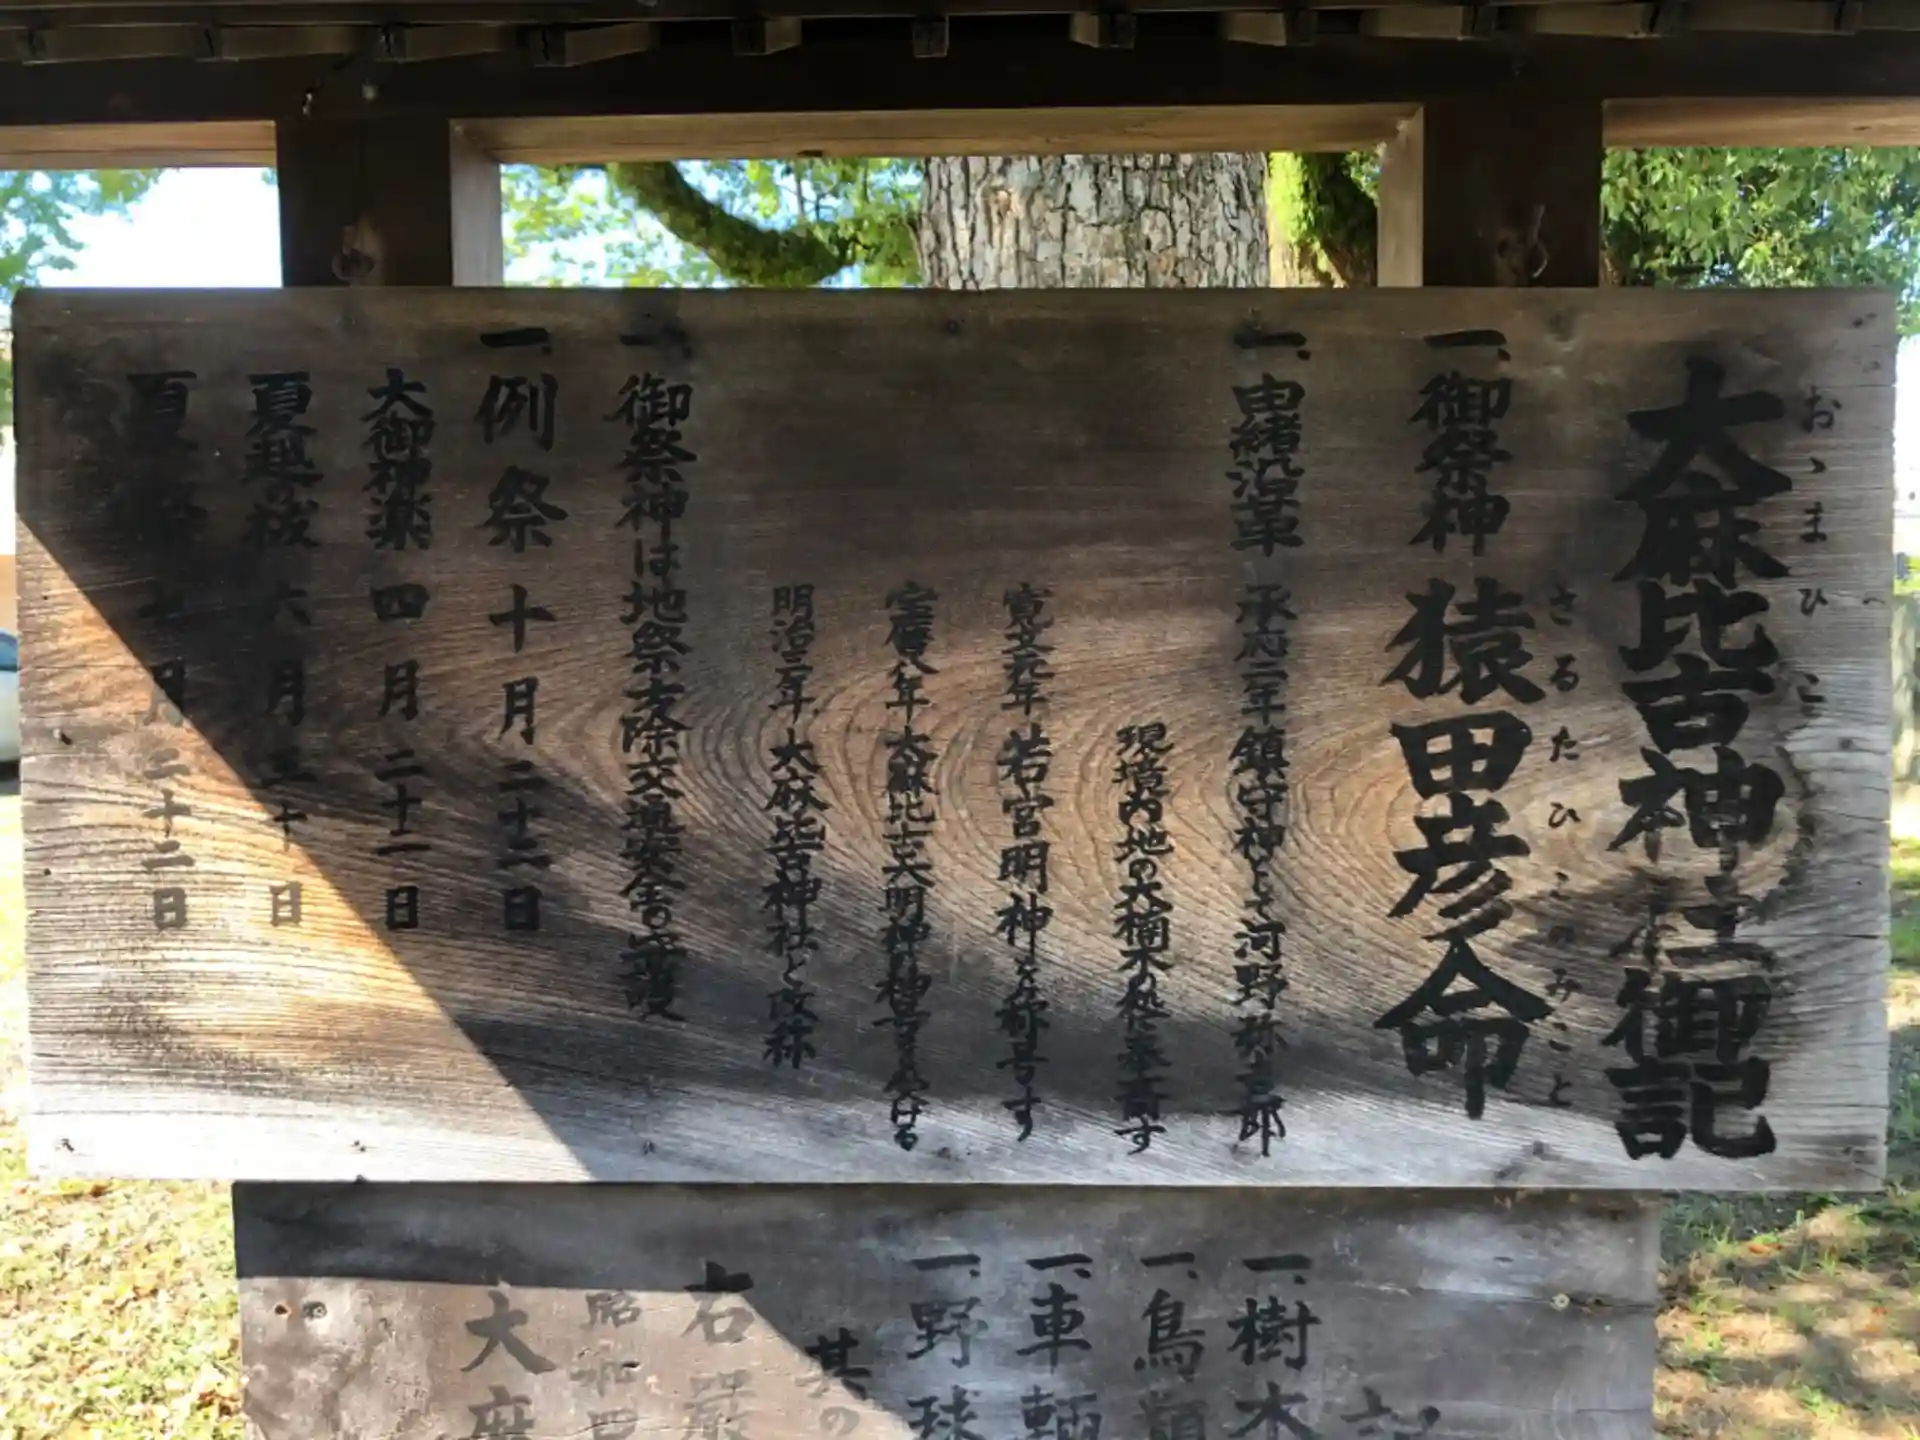 大麻比古神社御記
おゝまひこ
一、御祭神 猿田彦命
さるたひこのみこと
一、由緒沿革 承府二年鎮守神として河野弥吉郎
現境内地の大楠木の処に奉斎す
寛文元年 若宮明神と称号す
宝暦八年 大麻比古大明神の神号を受ける
明治三年 大麻比古神社と改称
一、御祭神は地祭方除交通安全の守護
一、例祭 十月二十二日
大御神楽 四月二十一日
夏越の祓 六月三十日
夏祭 七月二十二日
記
一、樹木
一、鳥類
一、車輌
一、野球
其の
右厳
昭和四
大麻